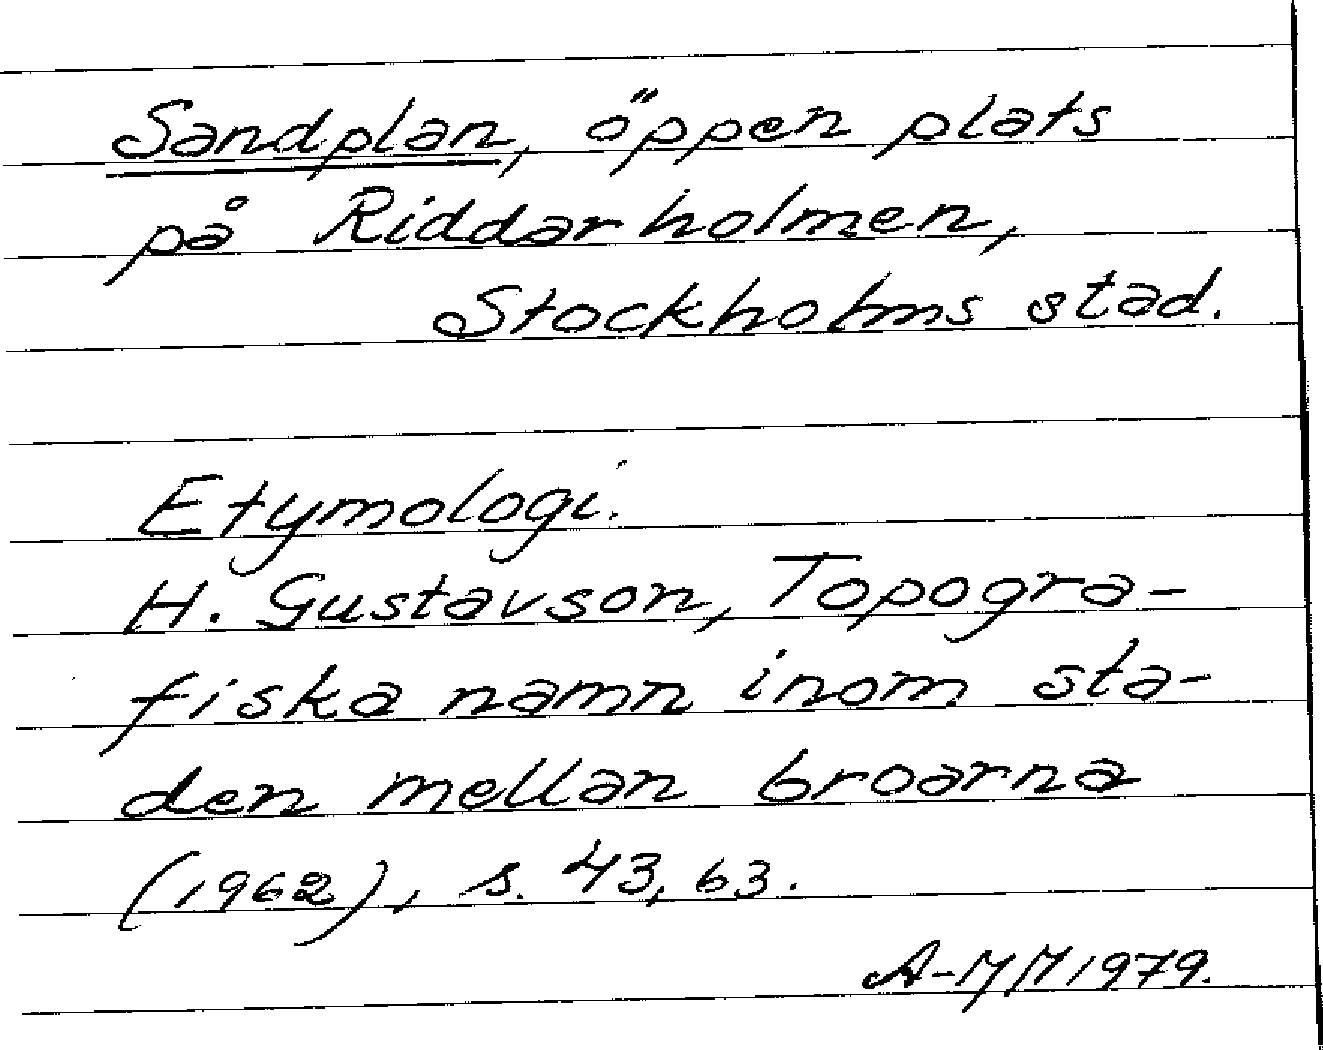 Sandplan, öppen plats
på Riddarholmen,
Stockholms stad.
Etymologi.
H. Gustavson, Topogra-
fiska namn inom sta-
den mellan broarna
(1962), s. 43, 63.
A-MM 1979.